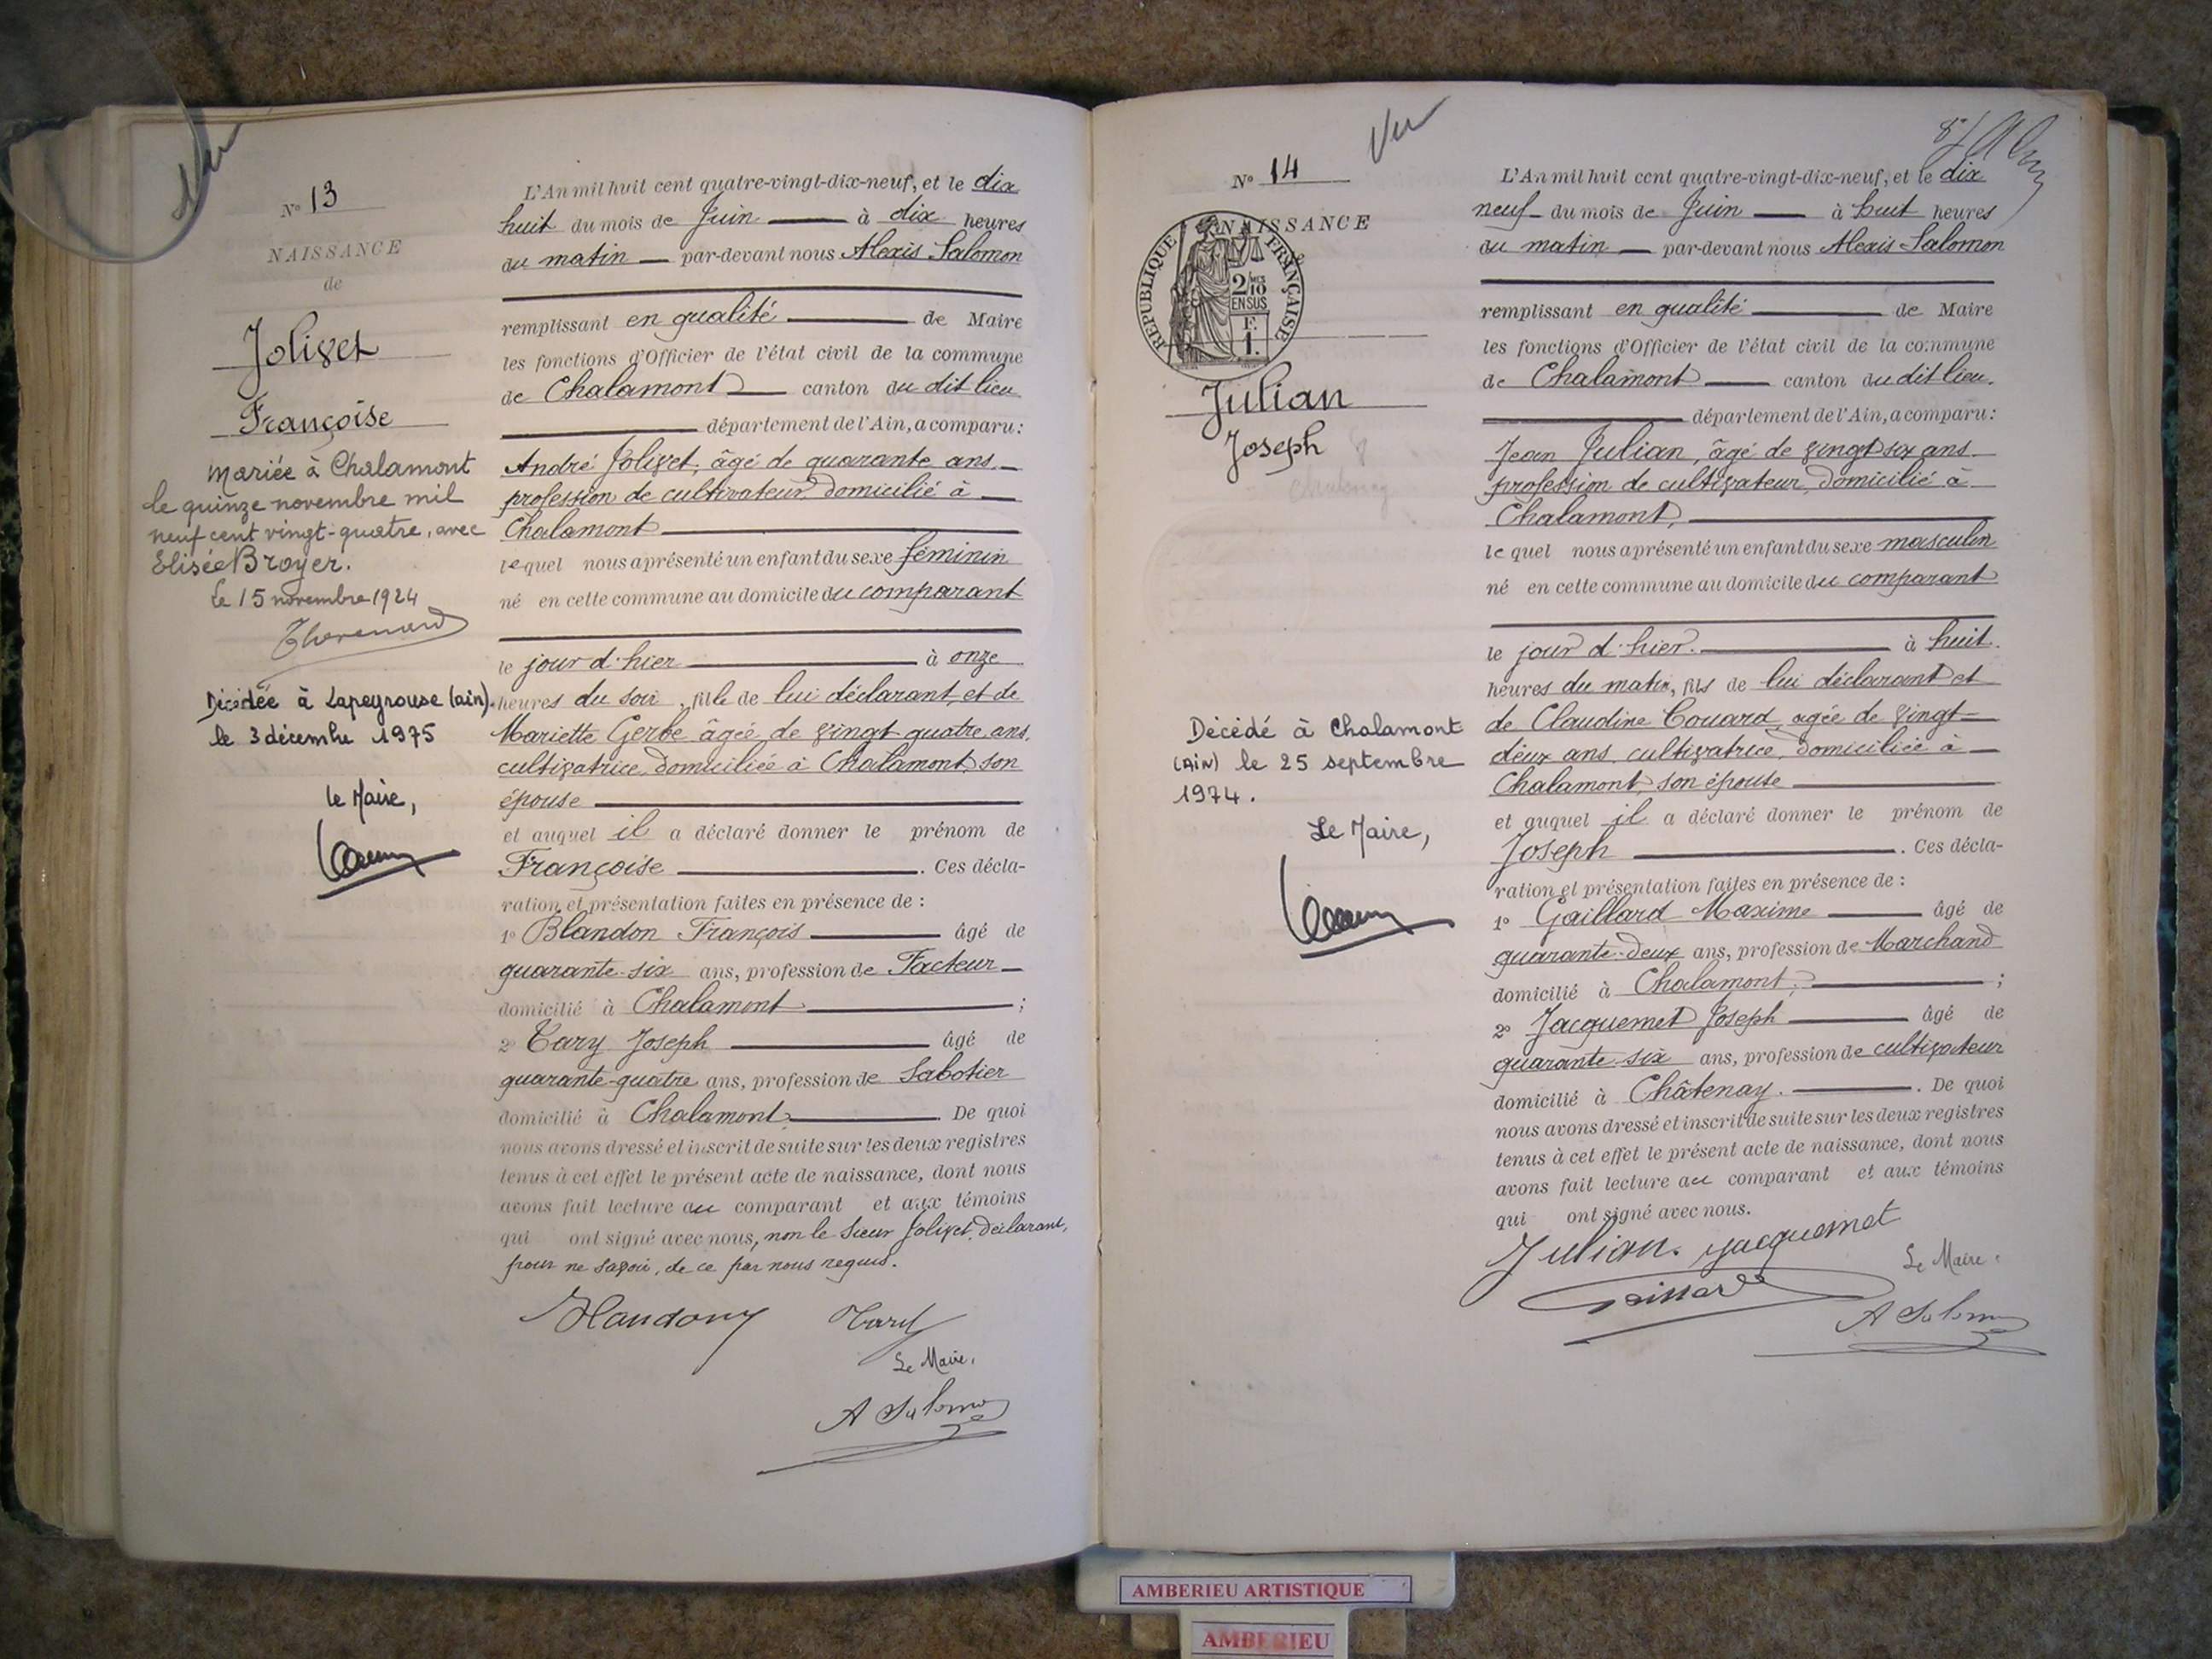 Vu
Nº 13
NAISSANCE
de
Jolivet
Françoise
Mariée à Chalamont
le quinze novembre mil
neuf cent vingt-quatre, avec
Elisée Broyer.
Le 15 novembre 1924
Décédée à Lapeyrouse (ain).
le 3 décembre 1975
le Maire,
L'An mil huit cent quatre-vingt-dix-neuf, et le dix
huit du mois de Juin à dix heures
du matin par-devant nous Alexis Salomon
remplissant en qualité de Maire
les fonctions d'Officier de l'état civil de la commune
de Chalamont canton du dit lieu
département de l'Ain, a comparu :
André Jolivet, âgé de quarante ans
profession de cultivateur domicilié à
Chalamont
lequel nous a présenté un enfant du sexe féminin
né en cette commune au domicile du comparant
le jour d'hier à onze
heures du soir, fille de lui déclarant, et de
Mariette Gerbe âgée de vingt quatre ans,
cultivatrice, domiciliée à Chalamont, son
épouse
et auquel il a déclaré donner le prénom de
Françoise . Ces décla-
ration et présentation faites en présence de :
1º Blandon François âgé de
quarante-six ans, profession de Facteur
domicilié à Chalamont ;
2º Tary Joseph âgé de
quarante-quatre ans, profession de Sabotier
domicilié à Chalamont . De quoi
nous avons dressé et inscrit de suite sur les deux registres
tenus à cet effet le présent acte de naissance, dont nous
avons fait lecture au comparant et aux témoins
qui ont signé avec nous, non le sieur Jolivet, déclarant,
pour ne savoir, de ce par nous requis.
Blandon Tary
Le Maire,
A Salomon
Vu
Nº 14
NAISSANCE
REPUBLIQUE FRANÇAISE
2/10MES
EN SUS
F.
1.
Julian
Joseph
Décédé à Chalamont
(AIN) le 25 septembre
1974.
Le Maire,
L'An mil huit cent quatre-vingt-dix-neuf, et le dix
neuf du mois de Juin à huit heures
du matin par-devant nous Alexis Salomon
remplissant en qualité de Maire
les fonctions d'Officier de l'état civil de la commune
de Chalamont canton du dit lieu.
département de l'Ain, a comparu :
Jean Julian, âgé de vingt six ans
profession de cultivateur, domicilié à
Chalamont,
lequel nous a présenté un enfant du sexe masculin
né en cette commune au domicile du comparant
le jour d'hier. à huit
heures du matin, fils de lui déclarant et
de Claudine Couard, agée de vingt-
deux ans, cultivatrice, domiciliée à
Chalamont, son épouse
et auquel il a déclaré donner le prénom de
Joseph . Ces décla-
ration et présentation faites en présence de :
1º Gaillard Maxime âgé de
quarante-deux ans, profession de Marchand
domicilié à Chalamont, ;
2º Jacquemet Joseph âgé de
quarante-six ans, profession de cultivateur
domicilié à Châtenay. . De quoi
nous avons dressé et inscrit de suite sur les deux registres
tenus à cet effet le présent acte de naissance, dont nous
avons fait lecture au comparant et aux témoins
qui ont signé avec nous.
Julian. Jacquemet
Le Maire.
A Salomon
AMBERIEU ARTISTIQUE
AMBERIEU